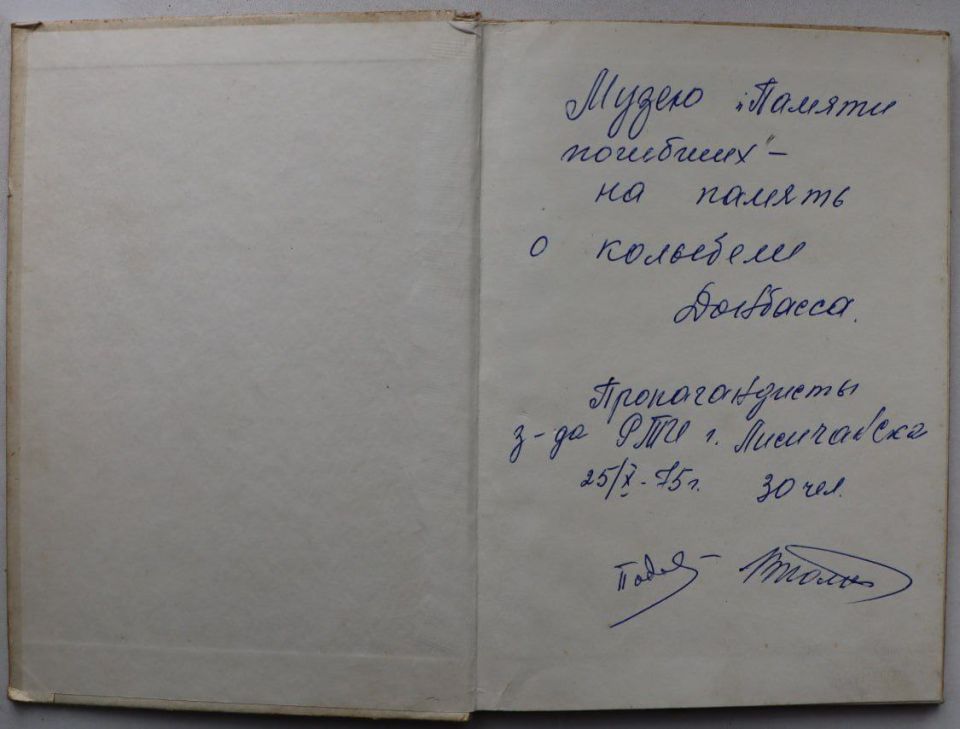 Музею „Памяти
погибших" –
на память
о колыбели
Донбасса.
Пропагандисты
з-да РТИ г. Лисичанска
25/X-75г. 30 чел.